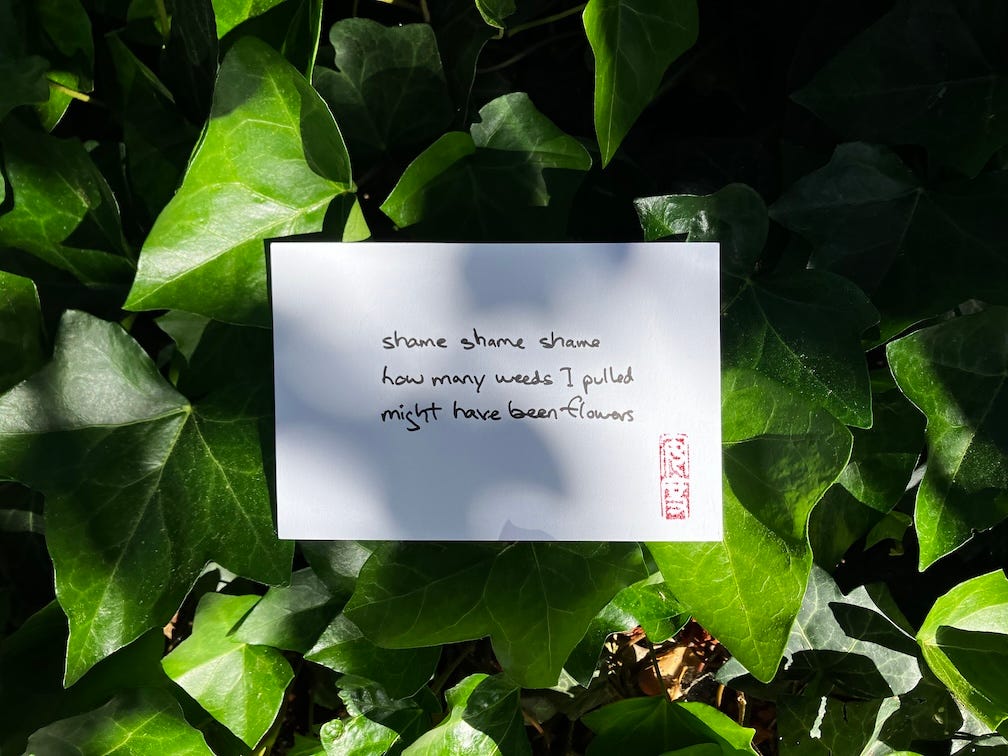 shame shame shame
how many weeds I pulled
might have been flowers